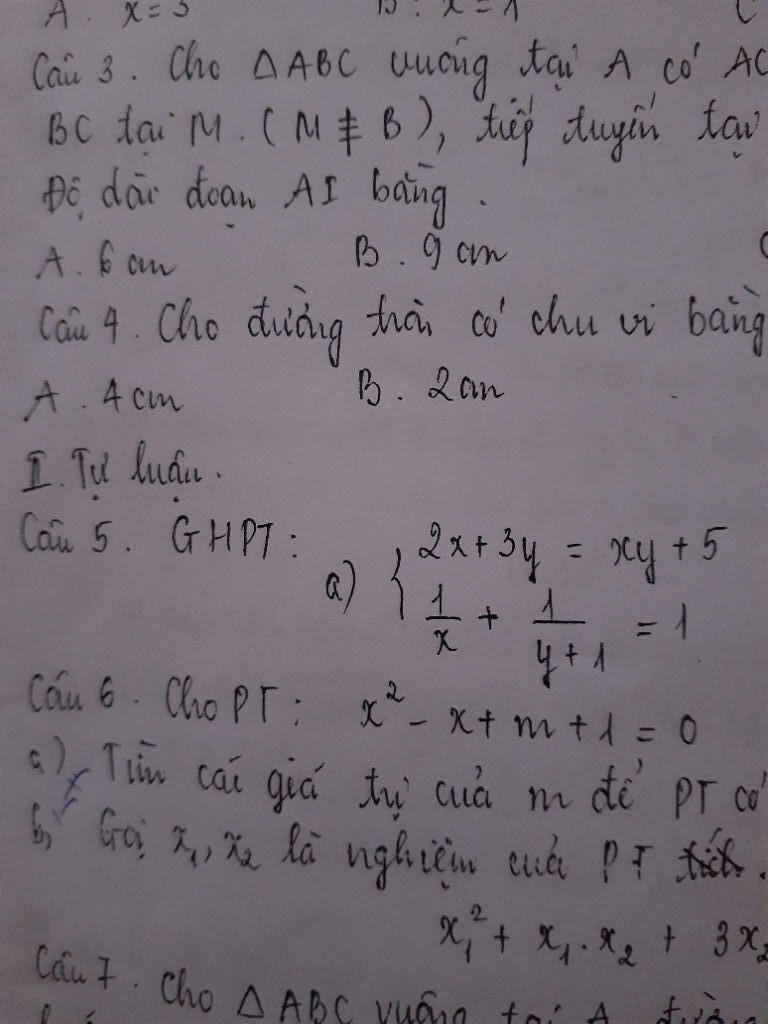 A. x=3 B. x=1 C
Câu 3. Cho △ABC vuông tại A có AC
BC tại M. (M ≢ B), tiếp tuyến tại
Độ dài đoạn AI bằng.
A. 6 cm B. 9 cm
Câu 4. Cho đường tròn có chu vi bằng
A. 4 cm B. 2 cm
II. Tự luận.
Câu 5. GHPT:
a) { 2x + 3y = xy + 5
1/x + 1/(y+1) = 1
Câu 6. Cho PT: x² - x + m + 1 = 0
a) Tìm các giá trị của m để PT có
b) Gọi x₁, x₂ là nghiệm của PT
x₁² + x₁.x₂ + 3x₂
Câu 7. Cho △ABC vuông tại A, đường